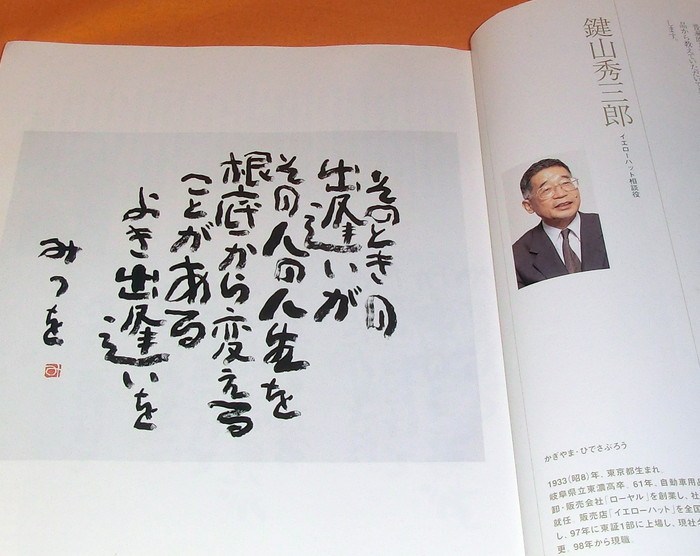 そのときの
出逢いが
その人の人生を
根底から変える
ことがある
よき出逢いを
みつを
鍵山秀三郎
イエローハット相談役
かぎやま・ひでさぶろう
1933(昭8)年、東京都生まれ。
岐阜県立東濃高卒。61年、自動車用品
卸・販売会社「ローヤル」を創業し、社
就任 販売店「イエローハット」を全国
し、97年に東証1部に上場し、現社
更。98年から現職。